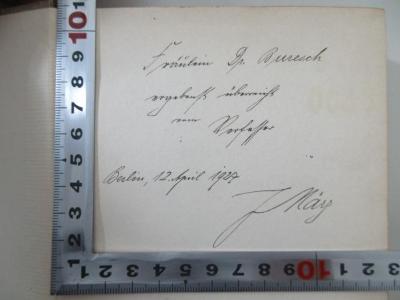 Fräulein Dr. Buresch
ergebenst überreicht
vom Verfasser
Berlin, 12. April 1927
J März
10 9 8 7 6 5 4 3 2 1
1 2 3
3 2 1
10 9 8 7 6 5 4 3 2 1